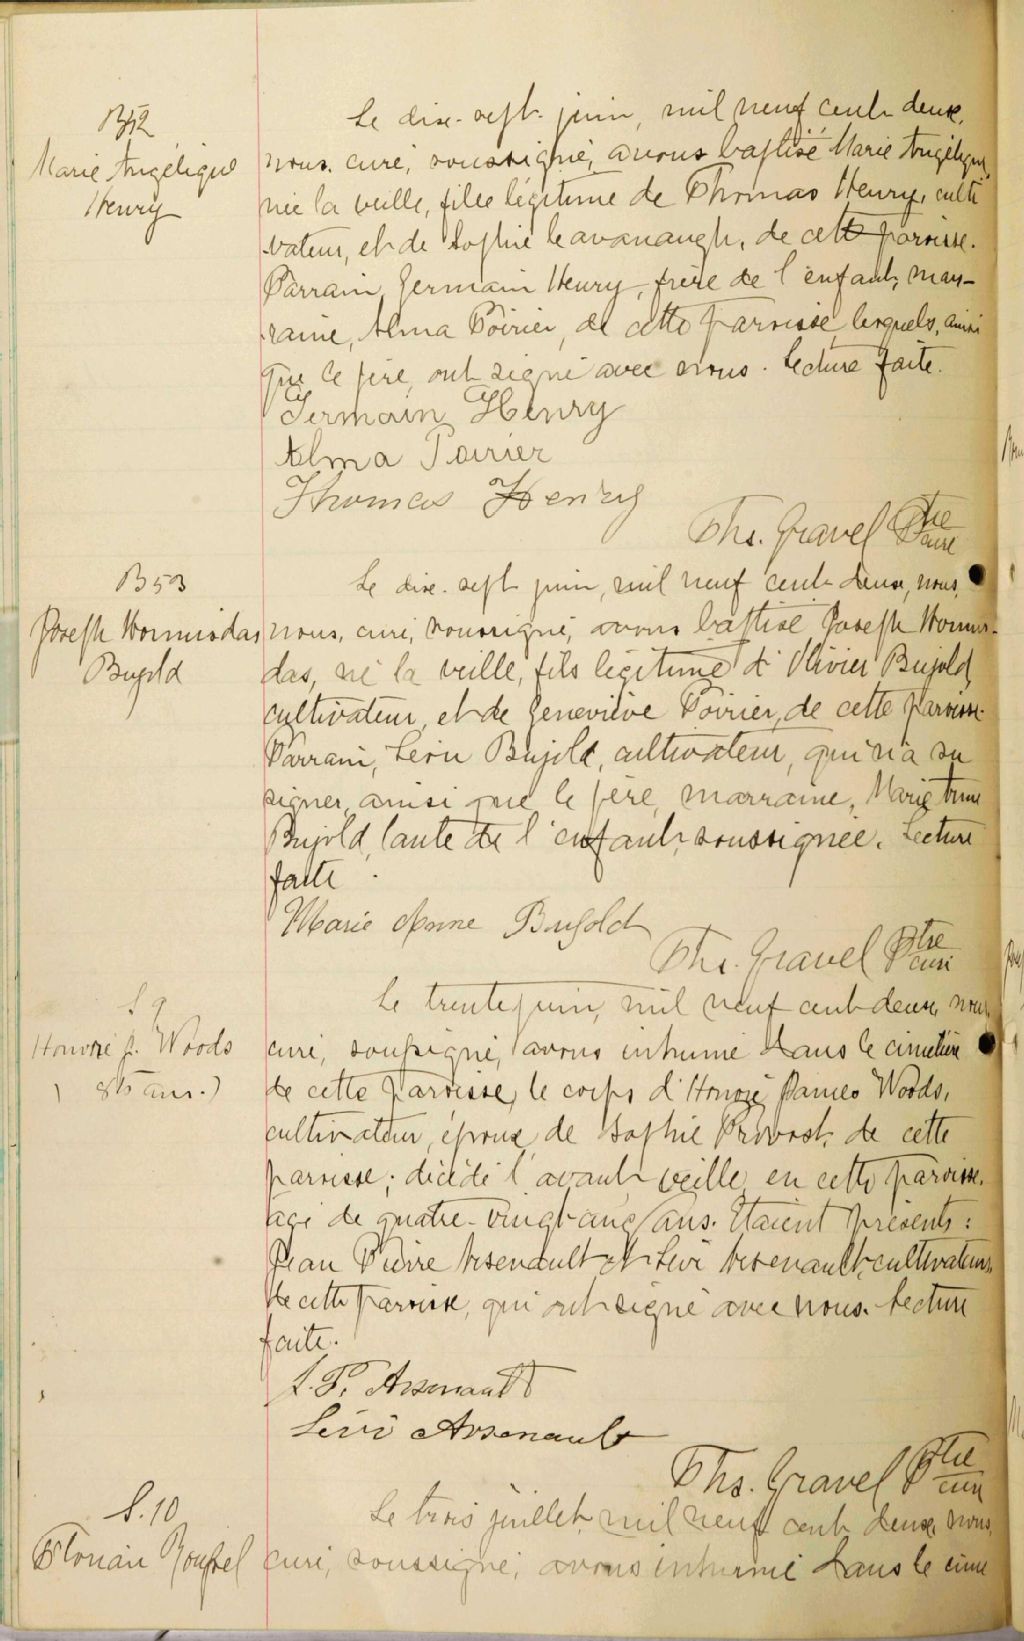 B52
Marie Angélique
Henry
Le dix-sept juin, mil neuf cent deux,
nous, curé, soussigné, avons baptisé Marie Angélique,
née la veille, fille légitime de Thomas Henry, culti
vateur, et de Sophie Leavanaugh, de cette paroisse.
Parrain, Germain Henry, frère de l'enfant, mar-
raine, Alma Poirier, de cette paroisse, lesquels, ainsi
que le père, ont signé avec nous. Lecture faite.
Germain Henry
Alma Poirier
Thomas Henry
Ths. Gravel Ptre curé
B53
Joseph Hormisdas
Bujold
Le dix-sept juin, mil neuf cent deux, nous,
nous, curé, soussigné, avons baptisé Joseph Hormis-
das, né la veille, fils légitime d'Olivier Bujold,
cultivateur, et de Geneviève Poirier, de cette paroisse.
Parrain, Léon Bujold, cultivateur, qui n'a su
signer, ainsi que le père, marraine, Marie Anne
Bujold, tante de l'enfant, soussignée. Lecture
faite.
Marie Anne Bujold
Ths. Gravel Ptre curé
S 9
Honoré J. Woods
85 ans.)
Le trente juin, mil neuf cent deux, nous,
curé, soussigné, avons inhumé dans le cimetière
de cette paroisse, le corps d'Honoré James Woods,
cultivateur, époux de Sophie Provost, de cette
paroisse; décédé l'avant veille, en cette paroisse,
âgé de quatre-vingt-cinq ans. Étaient présents:
Jean Pierre Arsenault et Lévi Arsenault, cultivateurs,
de cette paroisse, qui ont signé avec nous. Lecture
faite.
J. P. Arsenault
Lévi Arsenault
Ths. Gravel Ptre curé
S. 10
Florian
Le trois juillet, mil neuf cent deux, nous,
curé, soussigné, avons inhumé dans le cime